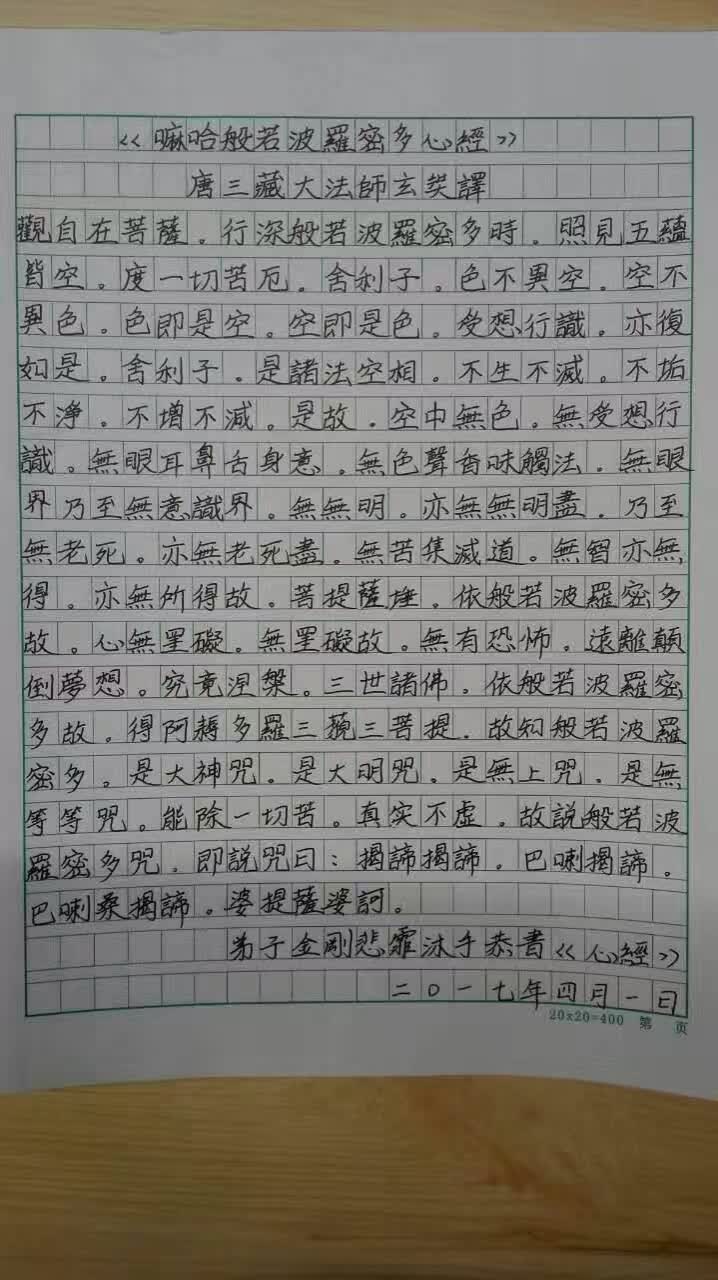 《嘛哈般若波羅密多心經》
唐三藏大法師玄奘譯
觀自在菩薩。行深般若波羅密多時。照見五蘊
皆空。度一切苦厄。舍利子。色不異空。空不
異色。色即是空。空即是色。受想行識。亦復
如是。舍利子。是諸法空相。不生不滅。不垢
不淨。不增不減。是故。空中無色。無受想行
識。無眼耳鼻舌身意。無色聲香味觸法。無眼
界乃至無意識界。無無明。亦無無明盡。乃至
無老死。亦無老死盡。無苦集滅道。無智亦無
得。亦無所得故。菩提薩埵。依般若波羅密多
故。心無罣礙。無罣礙故。無有恐怖。遠離顛
倒夢想。究竟涅槃。三世諸佛。依般若波羅密
多故。得阿耨多羅三藐三菩提。故知般若波羅
密多。是大神咒。是大明咒。是無上咒。是無
等等咒。能除一切苦。真实不虛。故説般若波
羅密多咒。即説咒曰：揭諦揭諦。巴喇揭諦。
巴喇桑揭諦。婆提薩婆訶。
弟子金剛悲霏沐手恭書《心經》
二〇一七年四月一日
20x20=400 第 页